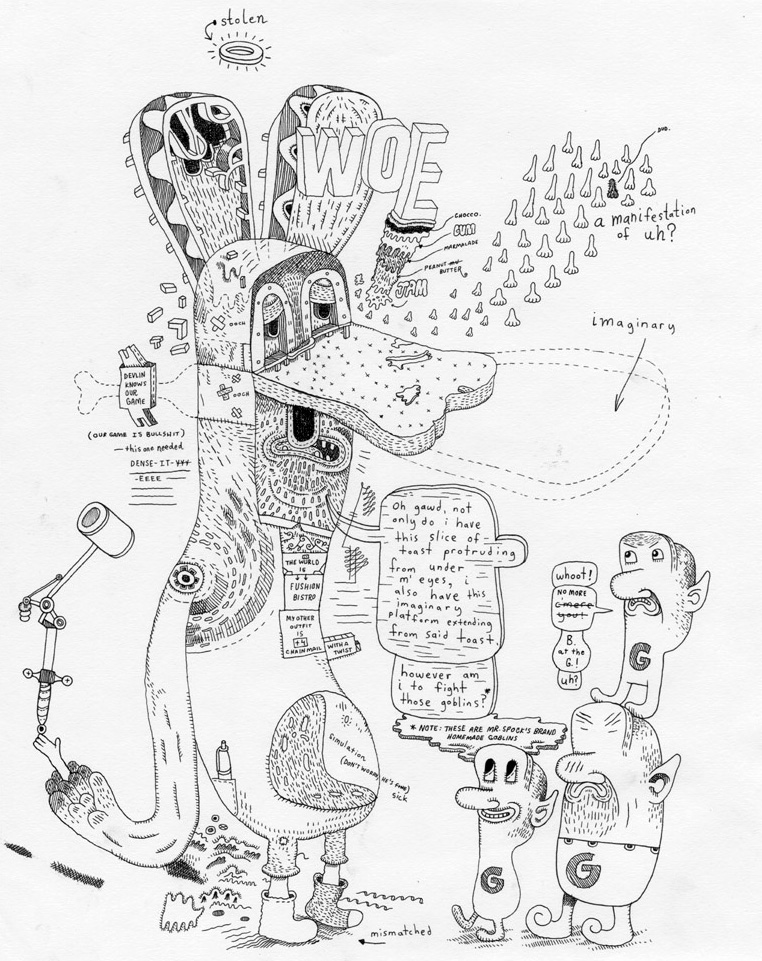 stolen
WOE
DUD.
a manifestation
of uh?
CHOCCO.
GUM
MARMALADE
PEANUT
BUTTER
JAM
imaginary
OOCH
OOCH
DEVLIN
KNOWS
OUR
GAME
(OUR GAME IS BULLSHIT)
this one needed
DENSE-IT-YYY
-EEEE
Oh gawd, not
only do i have
this slice of
toast protruding
from under
m' eyes, i
also have this
imaginary
platform extending
from said toast.
however am
i to fight
those goblins?*
* NOTE: THESE ARE MR. SPOCK'S BRAND
HOMEMADE GOBLINS
THE WORLD
IS
FUSHION
BISTRO
MY OTHER
OUTFIT
IS
+4
CHAINMAIL
WITH A
TWIST
whoot!
NO MORE
c'mere
yout
B.
at the
G.!
uh?
G
G
G
Simulation
(DON'T WORRY, HE'S FINE)
sick
mismatched